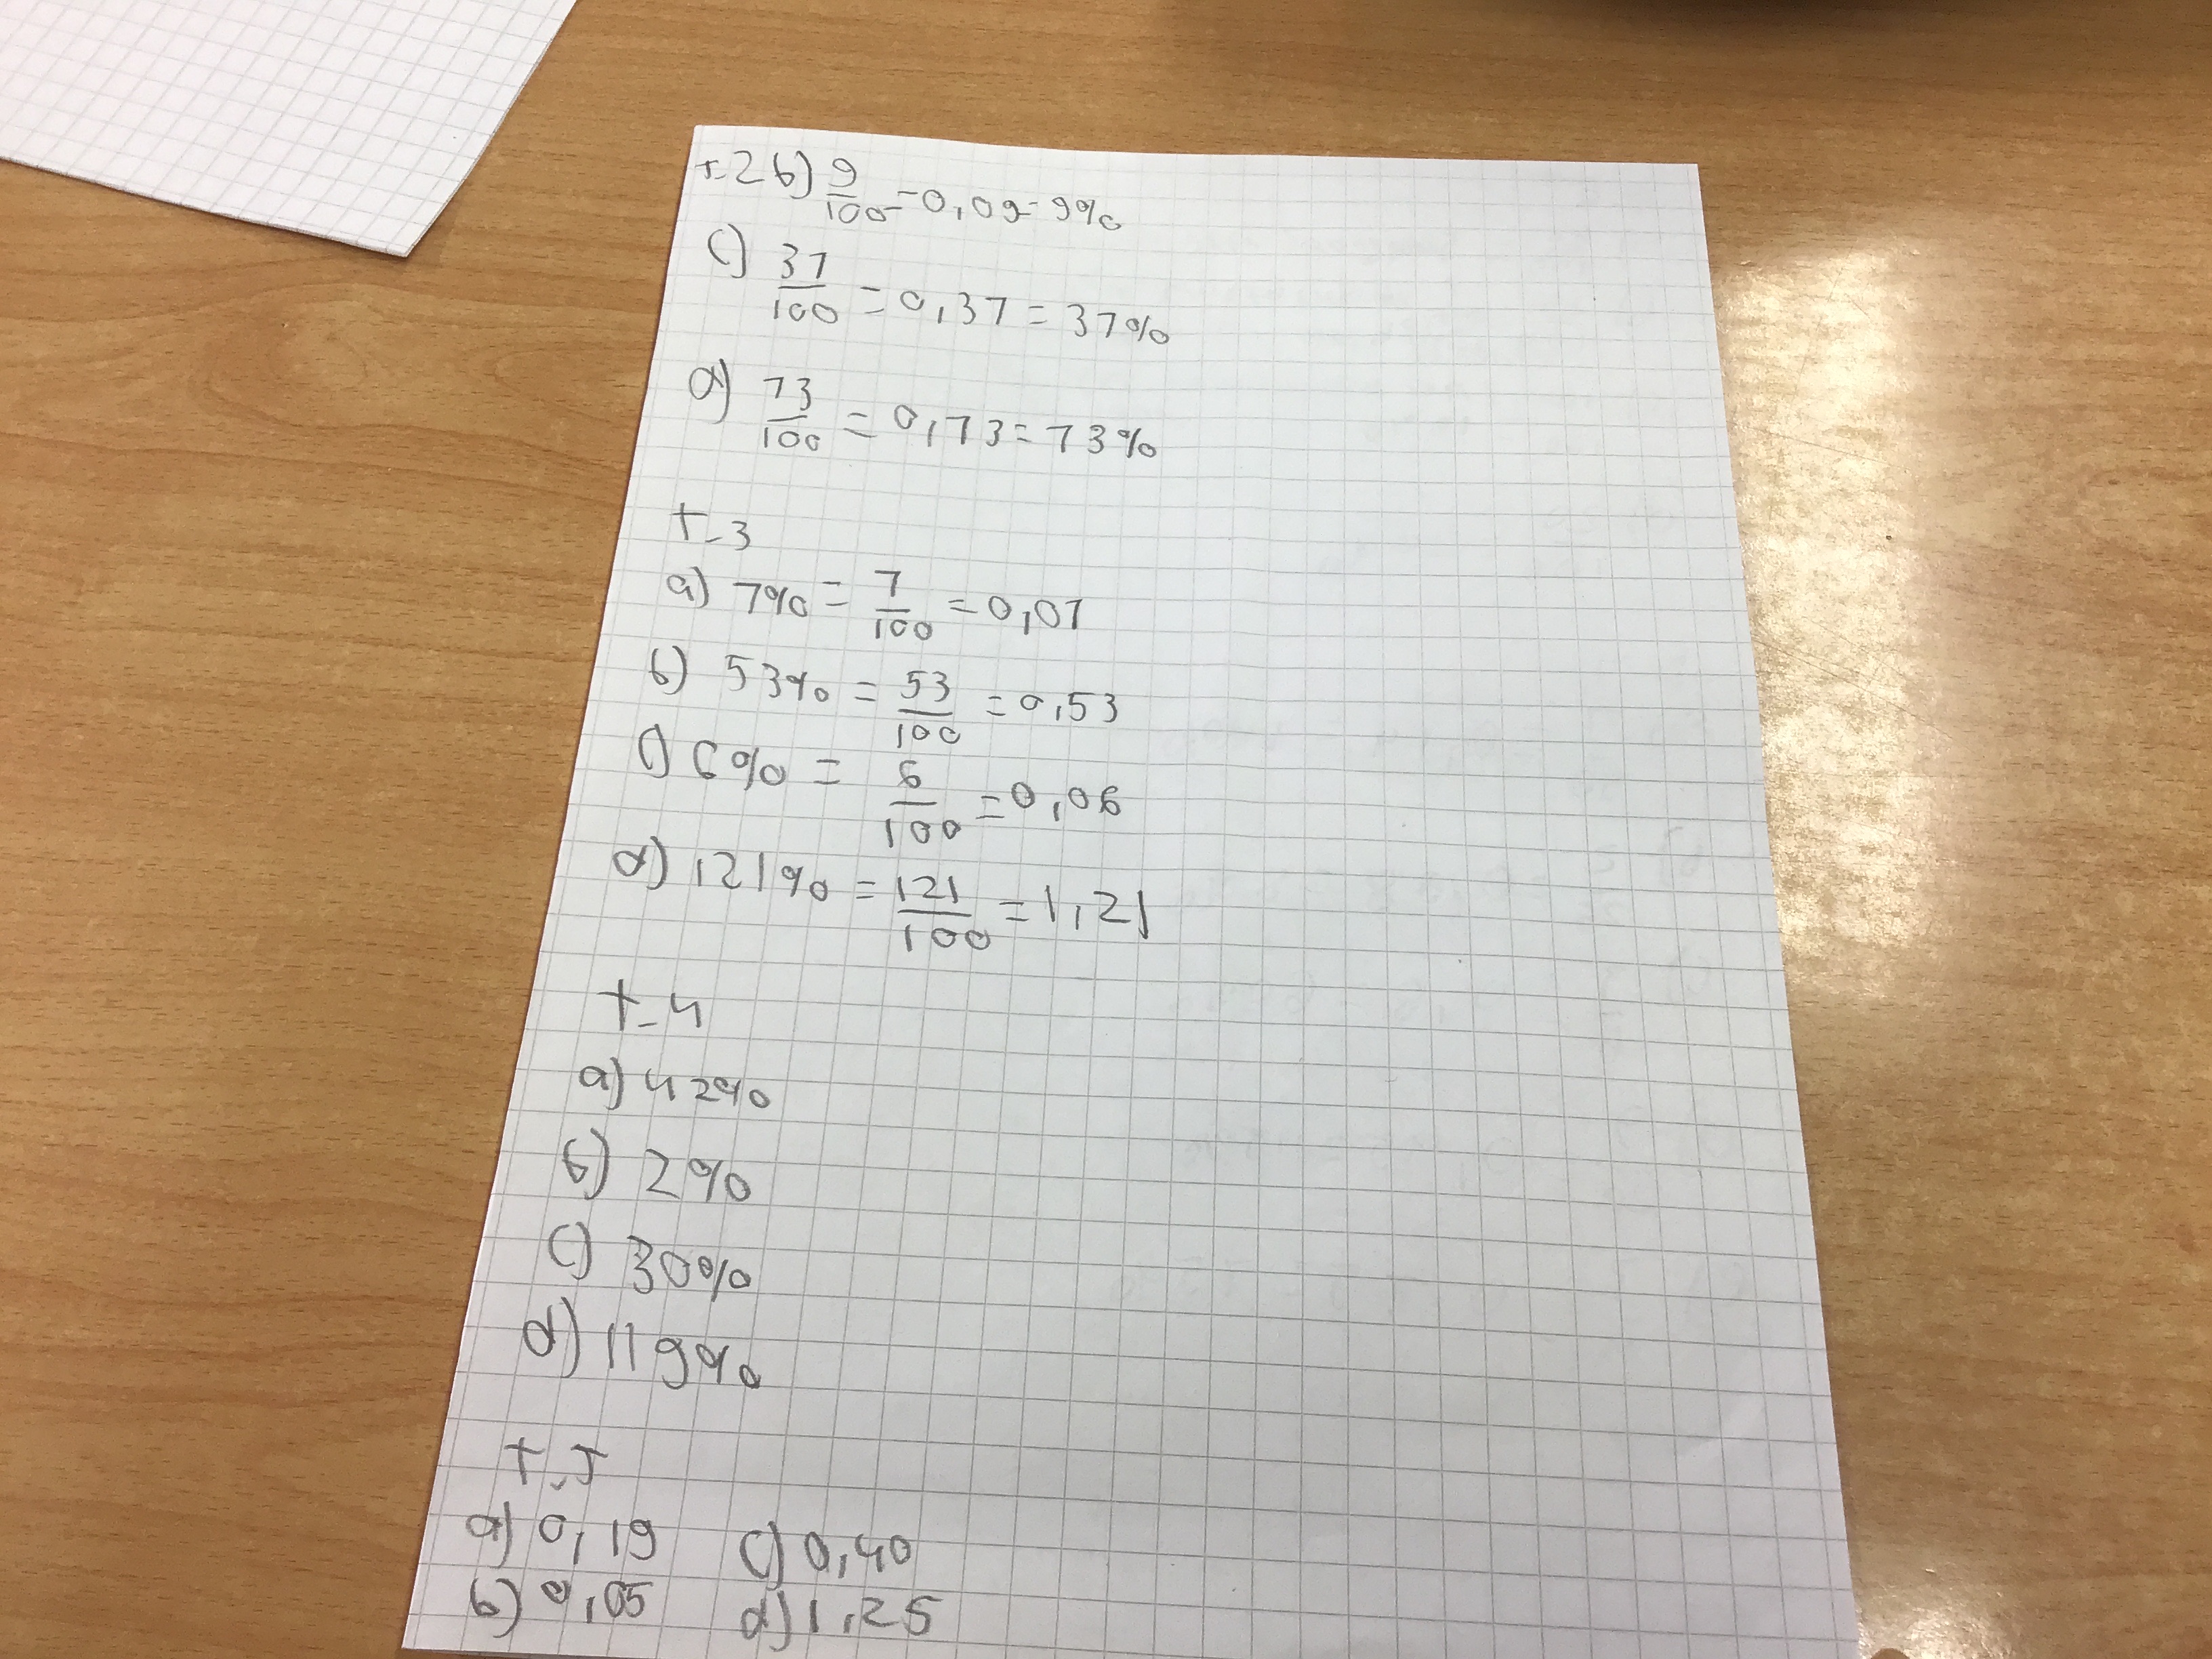 t-2 b) 9/100 = 0,09 = 9%
c) 37/100 = 0,37 = 37%
d) 73/100 = 0,73 = 73%
t-3
a) 7% = 7/100 = 0,07
b) 53% = 53/100 = 0,53
c) 6% = 6/100 = 0,06
d) 121% = 121/100 = 1,21
t-4
a) 42%
b) 2%
c) 30%
d) 119%
t-5
a) 0,19 c) 0,40
b) 0,05 d) 1,25